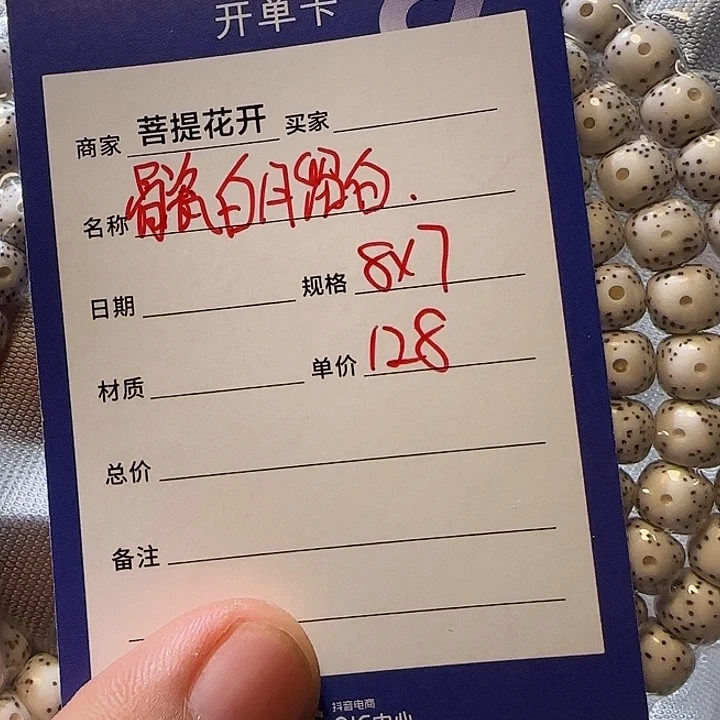 开单卡
商家 菩提花开 买家
名称 骨瓷白月留白.
日期 规格 8x7
材质 单价 128
总价
备注
抖音电商